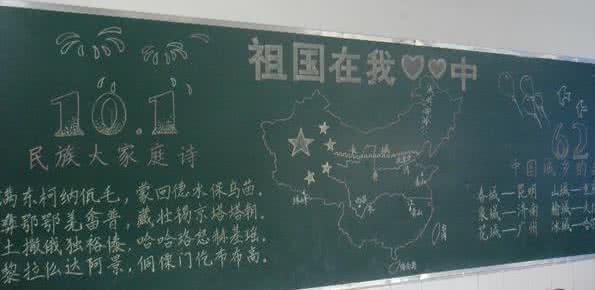 祖国在我中
10.1
民族大家庭诗
满东柯纳佤毛，蒙回德水保乌苗。
彝鄂鄂羌畲普，藏壮锡京塔塔朝。
土撒俄独裕傣，哈哈珞怒赫基瑶。
黎拉仫达阿景，侗傈门仡布布高。
长城
62
中国城市的
春城—昆明 山城—重
泉城—济南 榕城—
花城—广州 冰城—